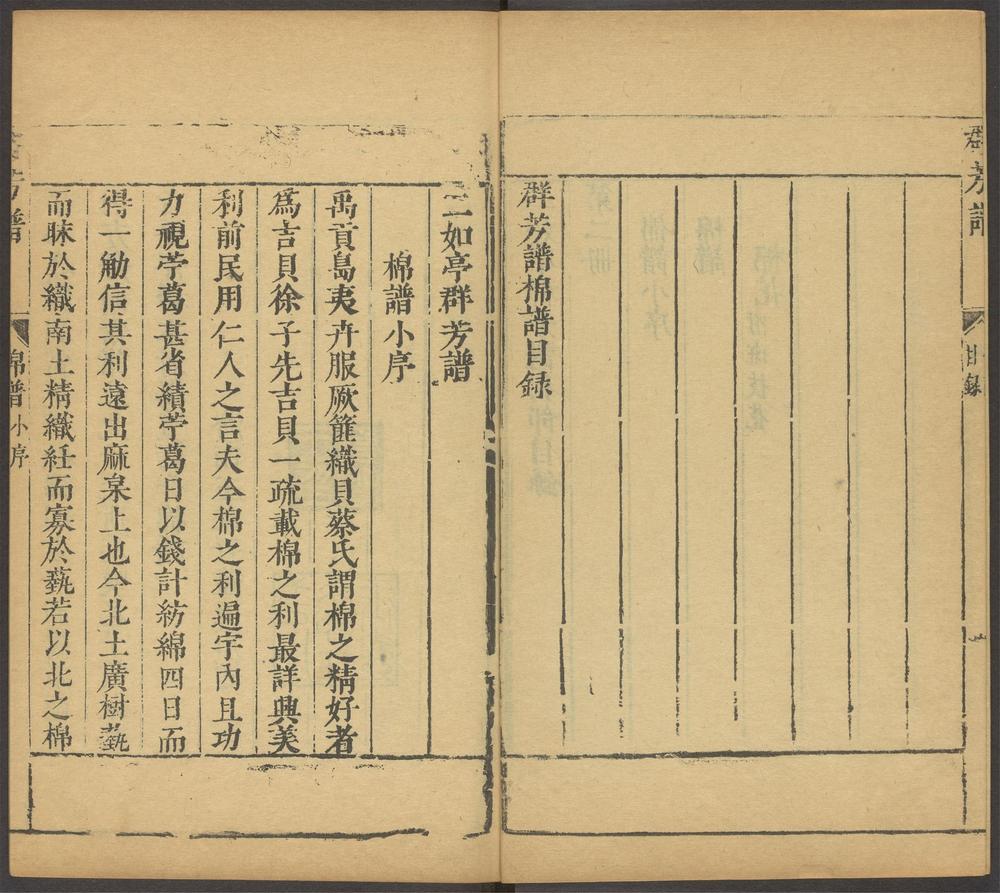 群芳譜
目録
群芳譜棉譜目録
二如亭群芳譜
棉譜小序
禹貢島夷卉服厥篚織貝蔡氏謂棉之精好者
爲吉貝徐子先吉貝一疏載棉之利最詳興美
利前民用仁人之言夫今棉之利遍宇內且功
力視苧葛甚省績苧葛日以錢計紡綿四日而
得一觔信其利遠出麻枲上也今北土廣樹蓺
而昧於織南土精織紝而寡於蓺若以北之棉
芳譜
棉譜小序